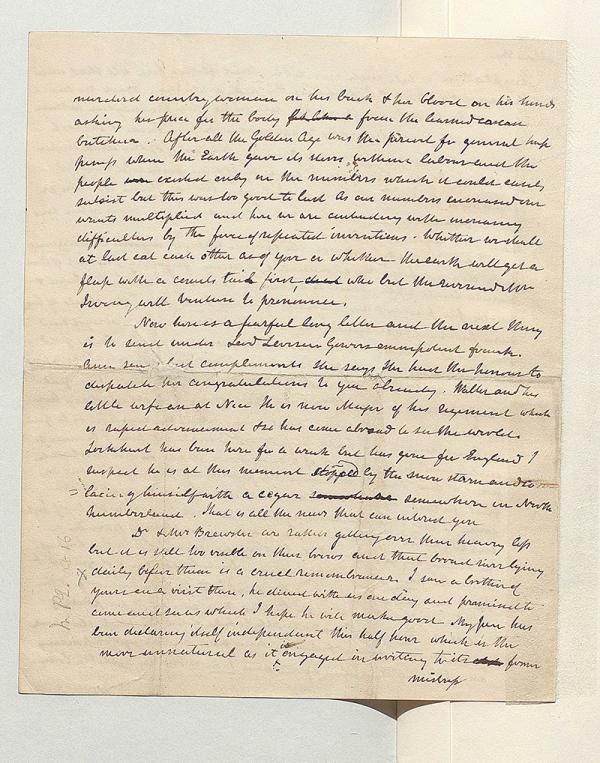 murderd countrywoman on his back & her blood on his hands
asking his price for the body from the learned carcase
butchers. After all the Golden Age was the period for general
when the Earth gave its stores without labour and the
people existed only in the numbers which it could easily
subsist but this was too good to last As our numbers increased our
wants multiplied and here we are contending with increasing
difficulties by the force of repeated inventions. Whether we shall
at last eat each other as of yore or whether the earth will get a
flap with a comets tail first who but the reverend Mr
Irving will venture to pronounce.
Now here is a fearful long letter and the next thing
is to send it under Lord Leveson Gowers omnipotent frank.
Anne sends best compliments she says she had the honour to
despatch her congratulations to you already. Walter and his
little wife are at Nice He is now Major of his regiment which
is rapid advancement & so has come abroad to see the world.
Lockhart has been here for a week but has gone for England I
suspect he is at this moment stopped by the snow storm and
himself with a cigar somewhere in North
humberland. That is all the news that can interest you
Dr & Mrs Brewster are rather getting over their heavy loss
but it is still too visible on their brows and that broad river lying
daily before them is a cruel remembrancer. I saw a brother of
yours on a visit there, he dined with us one day and promised to
come and see us which I hope he will make good My pen has
been declaring itself independent this half hour which is the
more unnatural as it is engaged in writing to its former
mistress